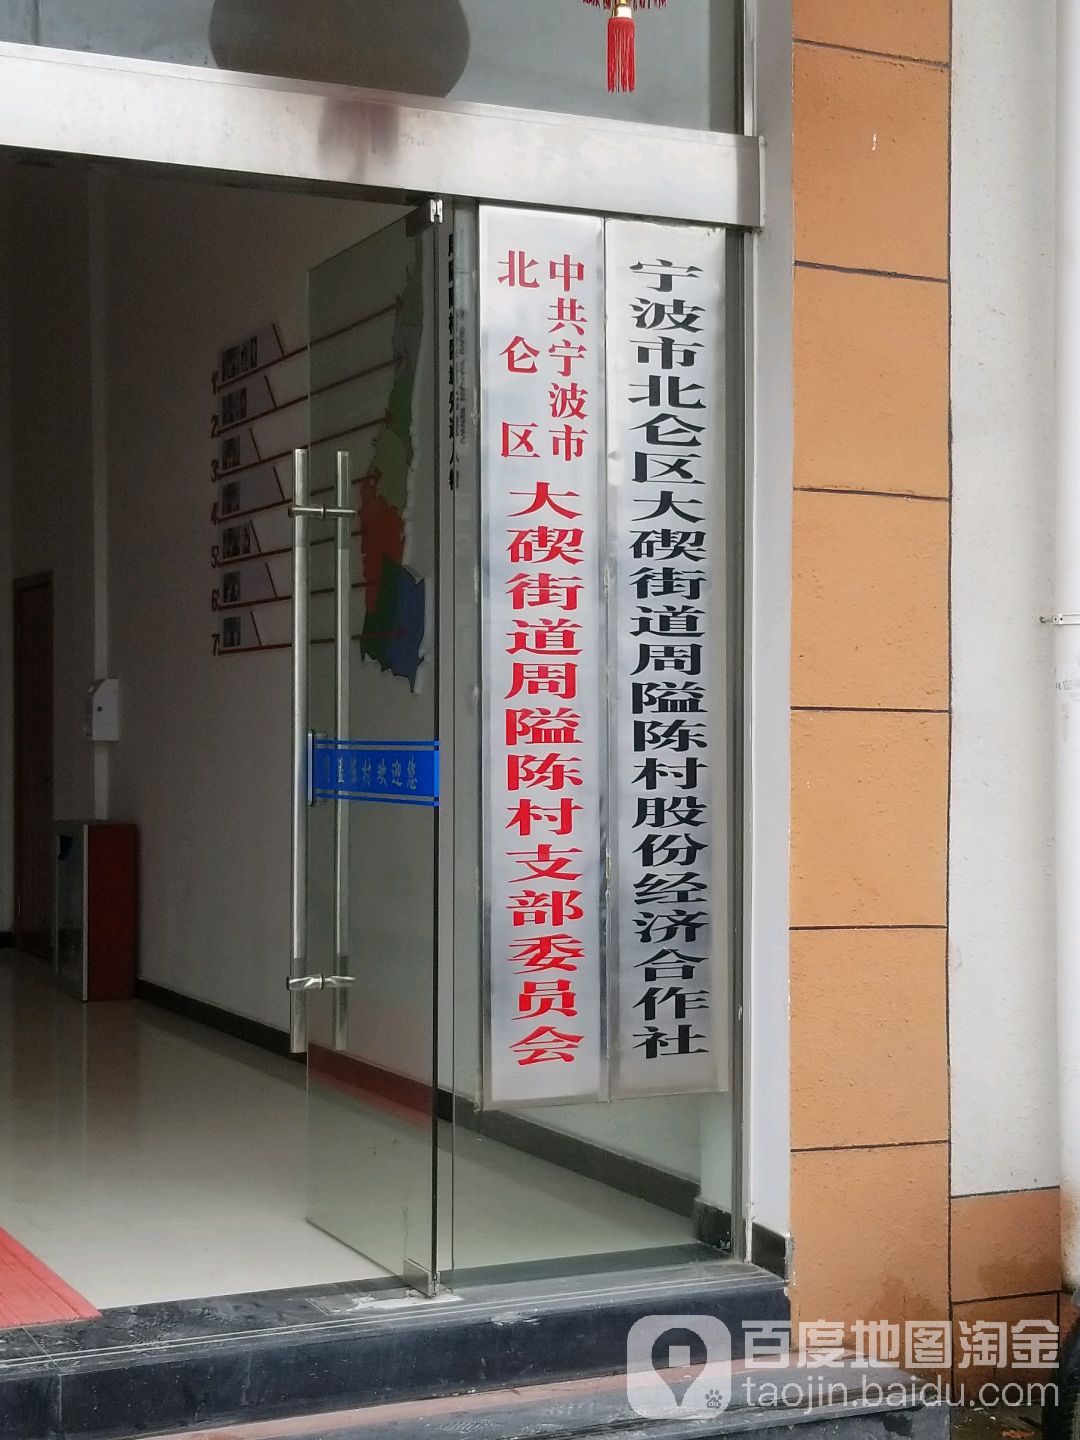 宁波市北仑区大碶街道周隘陈村股份经济合作社
中共宁波市
北仑区
大碶街道周隘陈村支部委员会
周隘陈村欢迎您
1
2
3
4
5
6
7
百度地图淘金
taojin.baidu.com